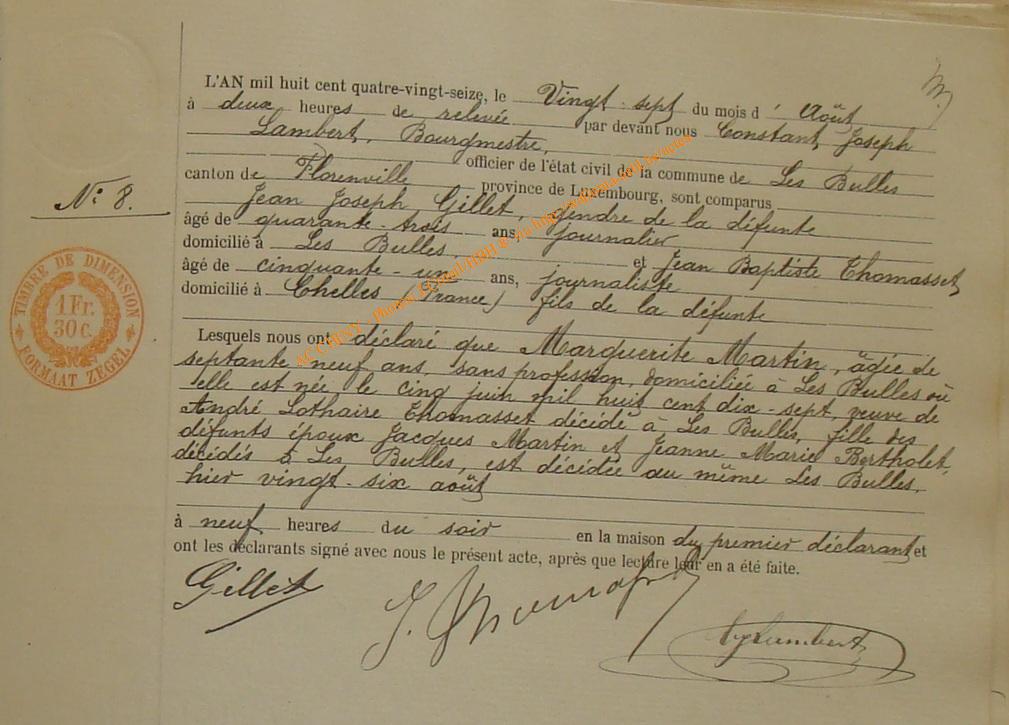 L'AN mil huit cent quatre-vingt-seize, le Vingt-sept du mois d'Août
à deux heures de relevée par devant nous Constant Joseph
Lambert, Bourgmestre,
officier de l'état civil de la commune de Les Bulles
canton de Florenville province de Luxembourg, sont comparus
Jean Joseph Gillet, gendre de la défunte
âgé de quarante-trois ans, journalier
domicilié à Les Bulles et Jean Baptiste Thomasset
âgé de cinquante-un ans, journaliste
domicilié à Chelles (France) fils de la défunte
Lesquels nous ont déclaré que Marguerite Martin, âgée de
septante neuf ans, sans profession, domiciliée à Les Bulles où
elle est née le cinq juin mil huit cent dix-sept, veuve de
André Lothaire Thomasset décédé à Les Bulles, fille des
défunts époux Jacques Martin et Jeanne Marie Bertholet,
décédés à Les Bulles, est décédée au même Les Bulles,
hier vingt-six août
à neuf heures du soir en la maison du premier déclarant et
ont les déclarants signé avec nous le présent acte, après que lecture leur en a été faite.
Gillet
J. Thomasset
Lambert
N° 8.
TIMBRE DE DIMENSION
1 Fr.
30 c.
FORMAAT ZEGEL